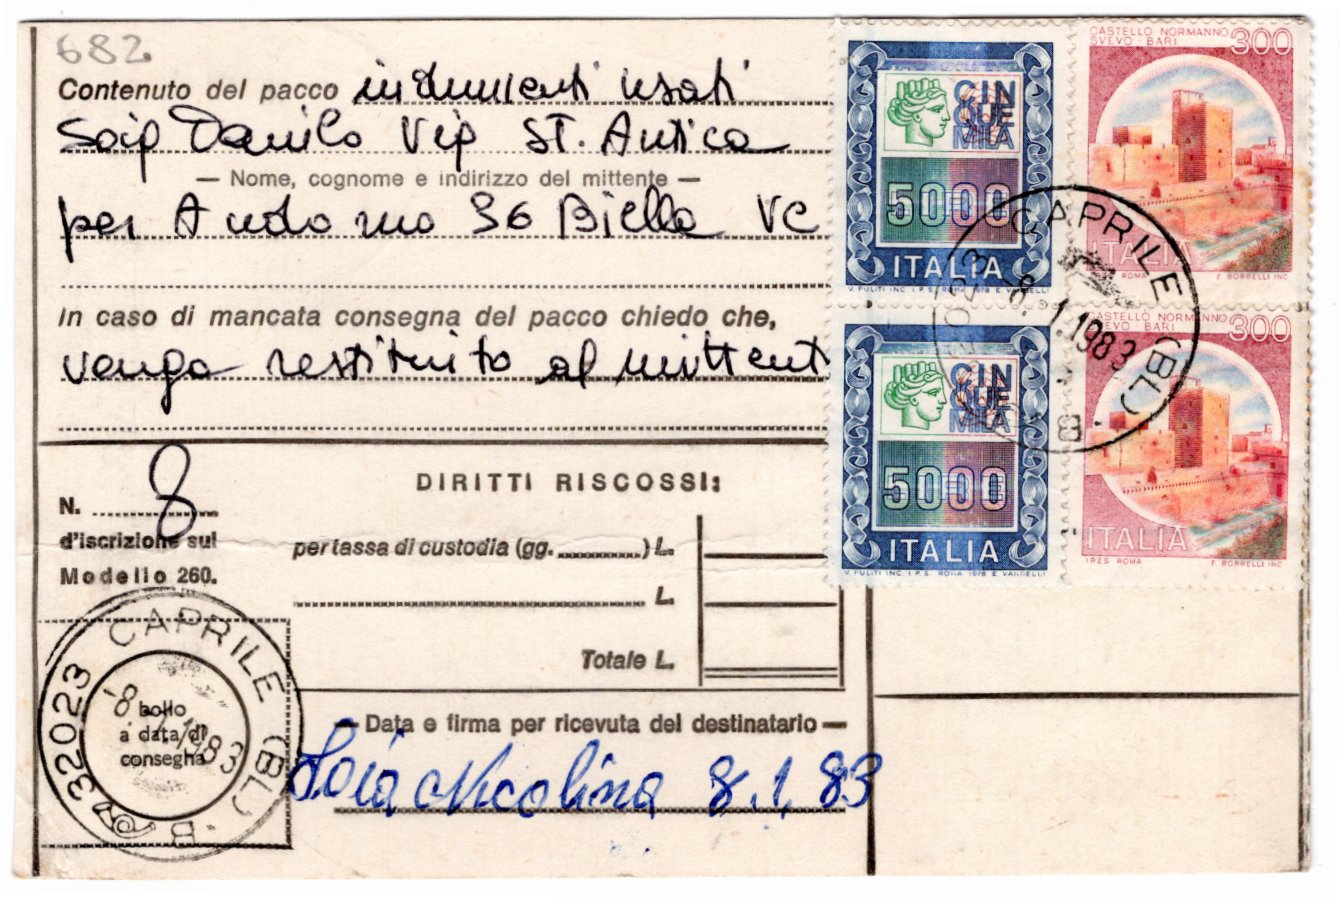 682
Contenuto del pacco indumenti usati
Soip Danilo Vip St. Antica
— Nome, cognome e indirizzo del mittente —
per Andorno 36 Biella VC
In caso di mancata consegna del pacco chiedo che,
venga restituito al mittent
N. 8
d'iscrizione sul
Modello 260.
DIRITTI RISCOSSI:
per tassa di custodia (gg. ) L.
L.
Totale L.
bollo
a data di
consegna
CAPRILE (BL)
32023
-8.-1.1983
B
— Data e firma per ricevuta del destinatario —
Nicolina 8.1.83
CINQUEMILA
5000
ITALIA
V. PULITI INC. I.P.S. ROMA 1978 E. VANGELLI
CASTELLO NORMANNO
SVEVO - BARI
300
ITALIA
ROMA F. BORRELLI INC.
CINQUEMILA
5000
ITALIA
V. PULITI INC. I.P.S. ROMA 1978 E. VANGELLI
CASTELLO NORMANNO
SVEVO - BARI
300
ITALIA
I.P.Z.S. ROMA F. BORRELLI INC.
CAPRILE (BL)
32023
-8.-1.1983
B